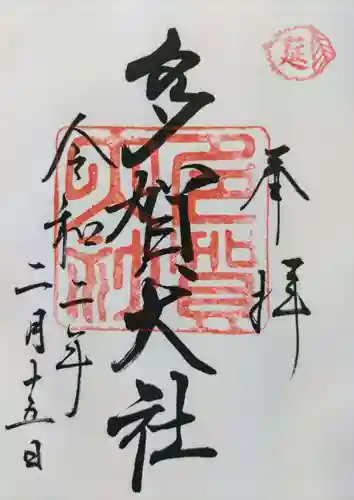 奉拝
延
多賀大社
令和二年
二月十五日